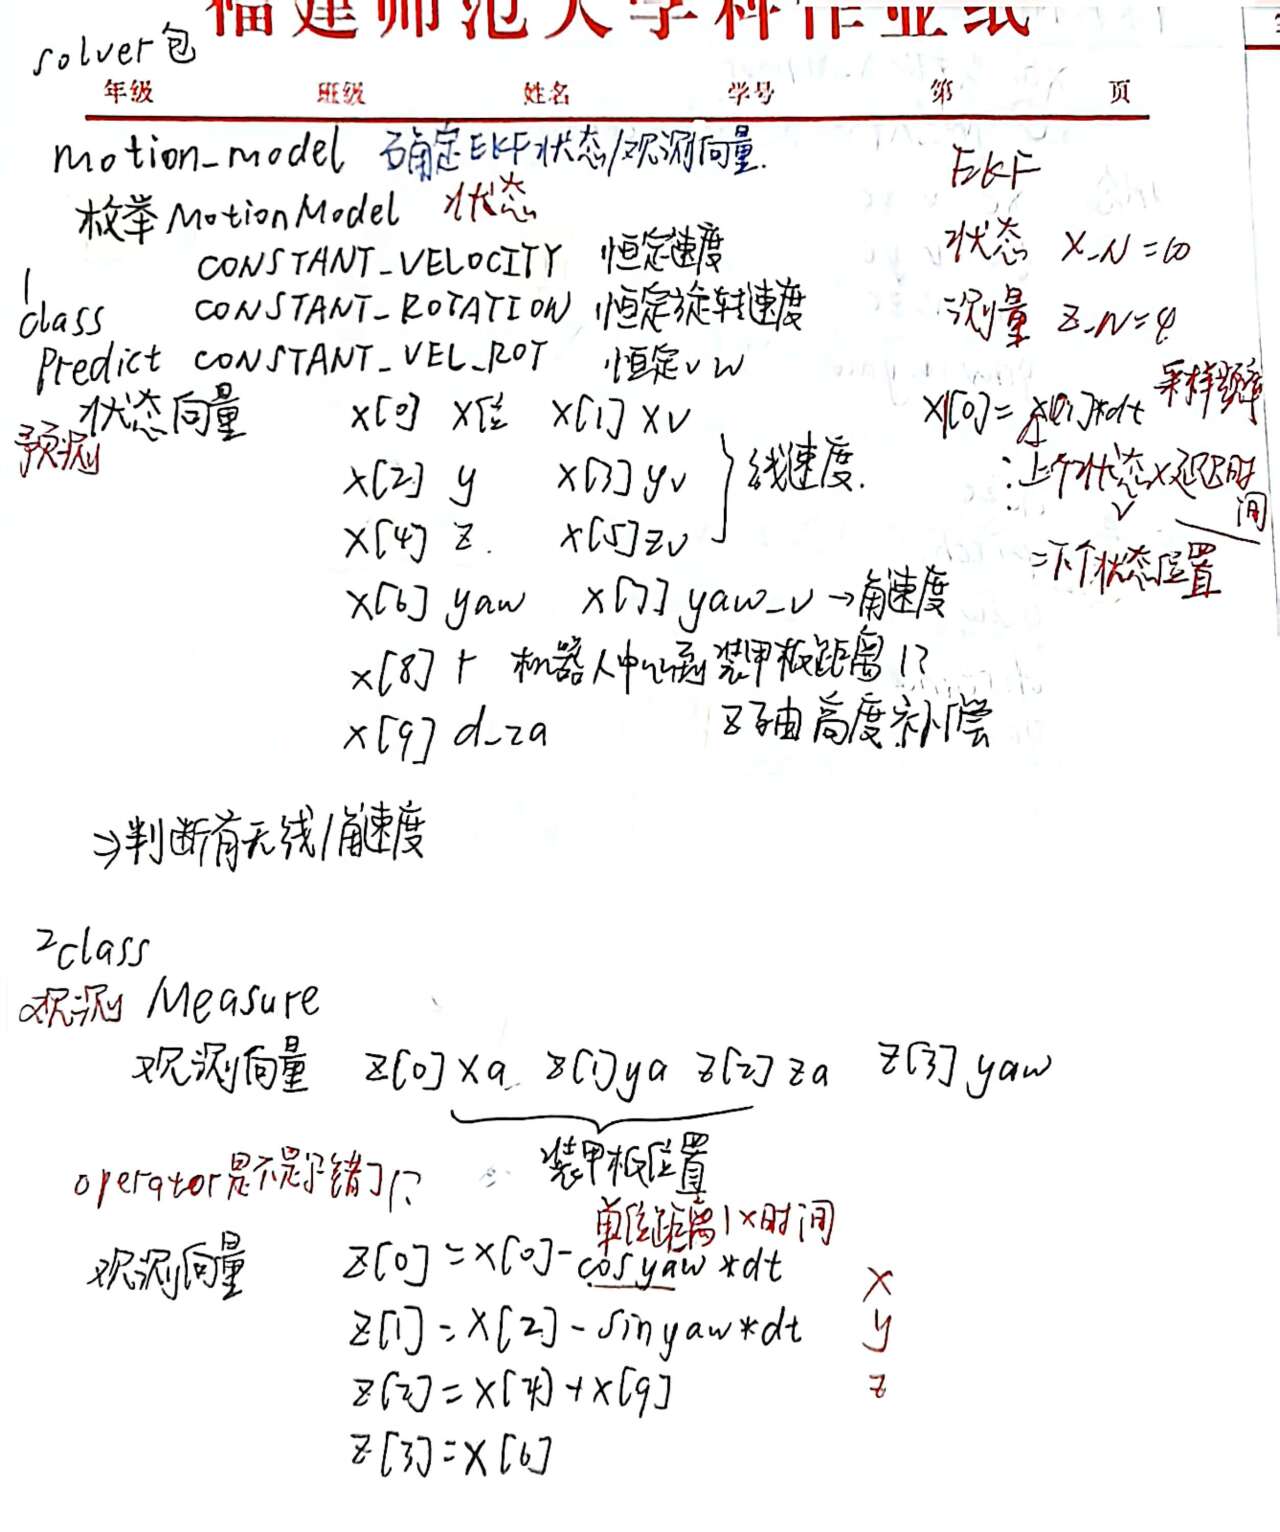 福建师范大学科作业纸
solver包
年级 班级 姓名 学号 第 页
motion_model 确定EKF状态/观测向量.
枚举MotionModel 状态
CONSTANT_VELOCITY 恒定速度
1
class CONSTANT_ROTATION 恒定旋转速度
Predict CONSTANT_VEL_ROT 恒定v w
预测
状态向量 X[0] X位 X[1] XV
X[2] y X[3] yv } 线速度.
X[4] z. X[5] zv
X[6] yaw X[7] yaw_v → 角速度
X[8] r 机器人中心到装甲板距离1?
X[9] d_za z轴高度补偿
EKF
状态 X_N=10
测量 Z_N=4
X[0]= X[1]*dt 采样频率
:上个状态v×延迟时间
=下个状态位置
⇒判断有无线/角速度
2class
观测 Measure
观测向量 Z[0] Xa Z[1] ya Z[2] za Z[3] yaw
装甲板位置
operator是不是写错了1?
单位距离1×时间
观测向量 Z[0]=X[0]-cosyaw*dt X
Z[1]=X[2]-sinyaw*dt y
Z[2]=X[4]+X[9] z
Z[3]=X[6]